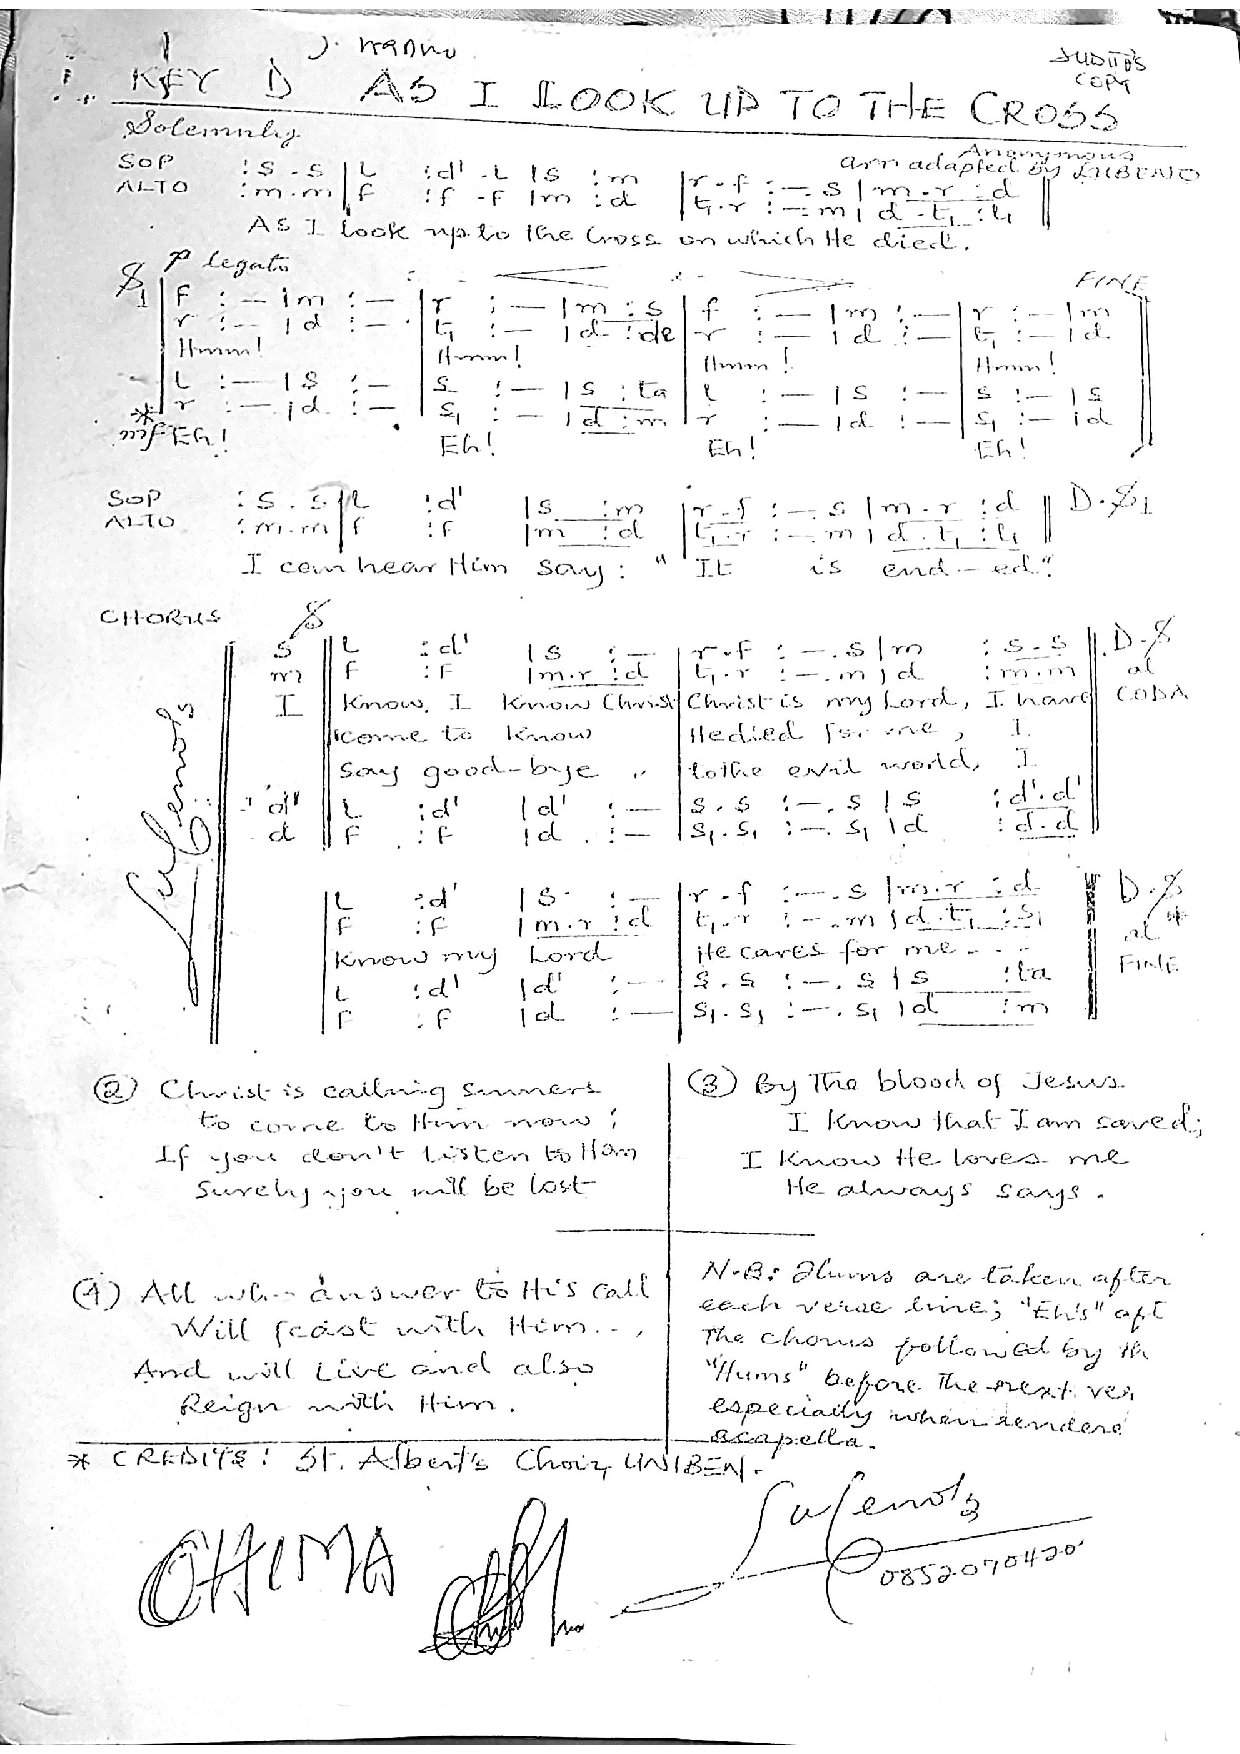 KEY D AS I LOOK UP TO THE CROSS
JUDITH'S
COPY
Solemnly
Anonymous
arr adapted by
SOP : s . s | L : d' . L | s : m | r . f : — . s | m . r : d
ALTO : m . m | f : f . f | m : d | t₁ . r : — . m | d . t₁ : l₁
As I look up to the Cross on which He died.
p legato
FINE
f : — | m : — | r : — | m : s | f : — | m : — | r : — | m
r : — | d : — | t₁ : — | d : de | r : — | d : — | t₁ : — | d
Hmm! Hmm! Hmm! Hmm!
L : — | s : — | s : — | s : ta | l : — | s : — | s : — | s
* r : — | d : — | s₁ : — | d : m | r : — | d : — | s₁ : — | d
mf Eh! Eh! Eh! Eh!
SOP : s . s | L : d' | s : m | r . f : — . s | m . r : d || D.S₁
ALTO : m . m | f : f | m : d | t₁ . r : — . m | d . t₁ : l₁
I can hear Him say: "It is end-ed".
CHORUS
s || L : d' | s : — | r . f : — . s | m : s . s || D.S
m || F : F | m . r : d | t₁ . r : — . m | d : m . m || al
I Know, I Know Christ Christ is my Lord, I have CODA
come to know He died for me, I
say good-bye " to the evil world, I
d' || L : d' | d' : — | s . s : — . s | s : d' . d'
d || F : f | d : — | s₁ . s₁ : — . s₁ | d : d . d
L : d' | s : — | r . f : — . s | m . r : d || D.S
F : f | m . r : d | t₁ . r : — . m | d . t₁ : s₁ al
Know my Lord He cares for me - - - FINE
L : d' | d' : — | s . s : — . s | s : ta
F : f | d : — | s₁ . s₁ : — . s₁ | d : m
② Christ is calling sinners
to come to Him now;
If you don't listen to Him
Surely you will be lost
③ By The blood of Jesus
I Know that I am saved;
I Know He loves me
He always says.
④ All who answer to His call
Will feast with Him...,
And will Live and also
Reign with Him.
N.B: Hums are taken after
each verse line; "Eh's" aft
The chorus followed by th
"Hums" before the next ver
especially when rendere
acapella.
* CREDITS: St. Albert's Choir, UNIBEN.
CHIMA
0852070420